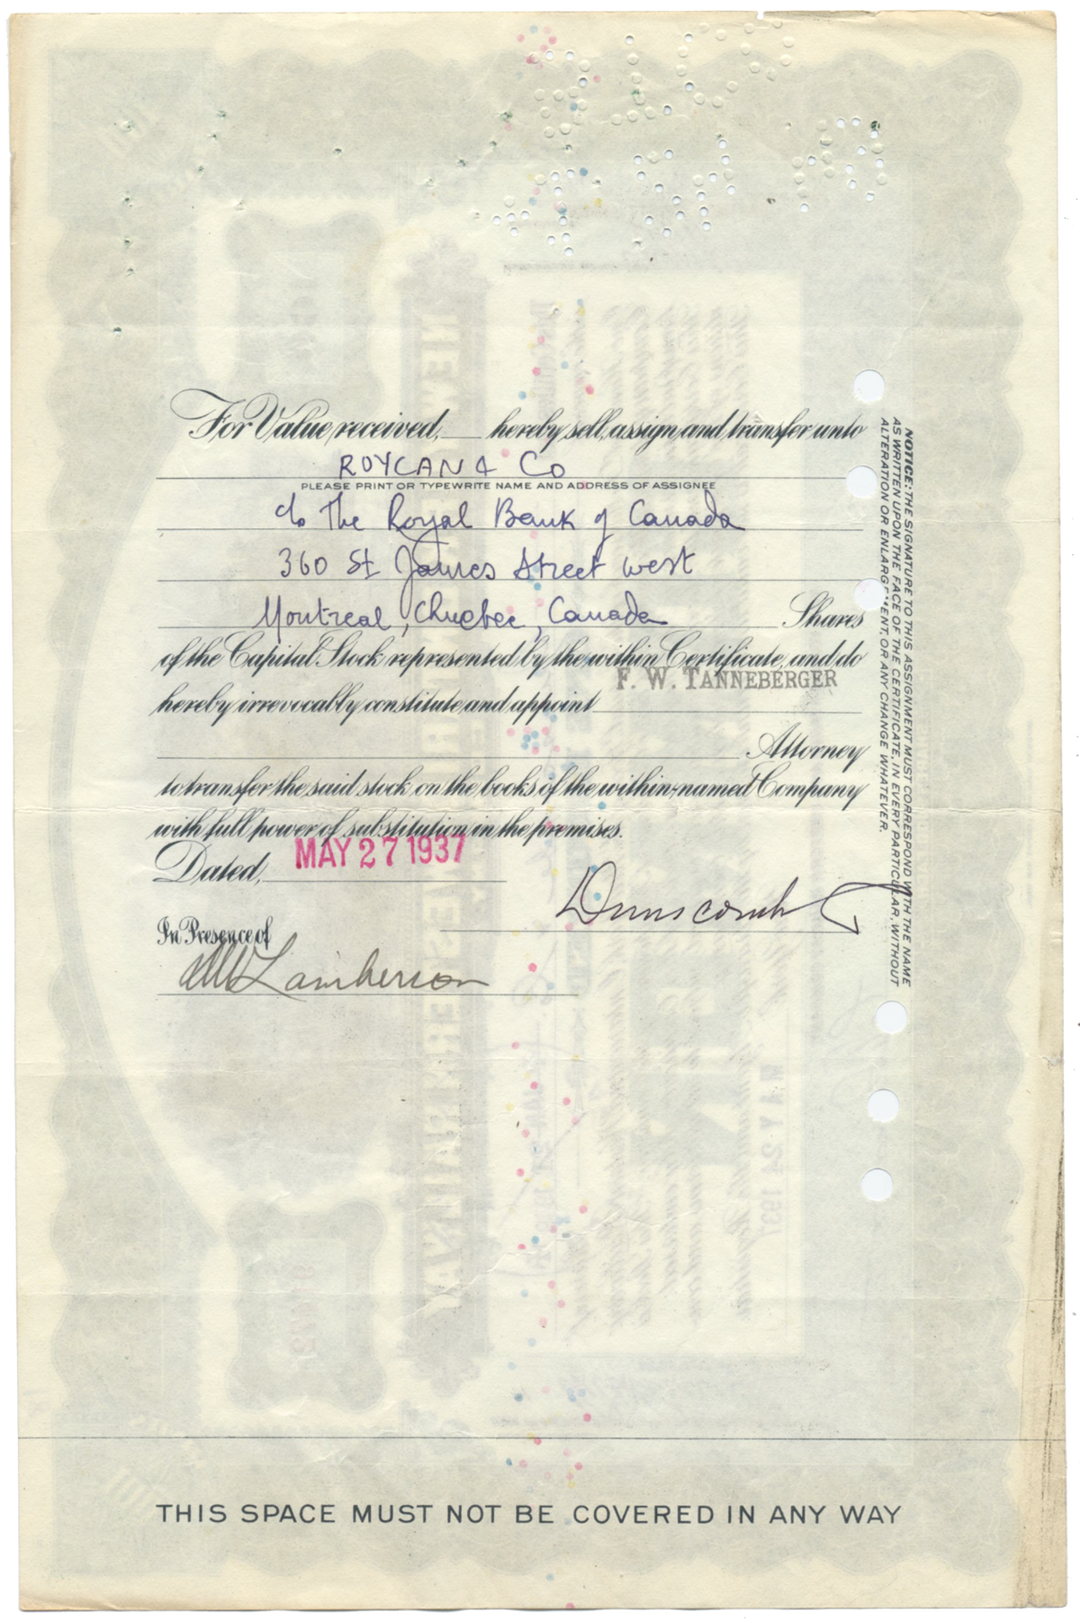 For Value received, ___ hereby sell, assign and transfer unto
ROYCAN & Co
PLEASE PRINT OR TYPEWRITE NAME AND ADDRESS OF ASSIGNEE
c/o The Royal Bank of Canada
360 St James Street west
Montreal, Quebec, Canada Shares
of the Capital Stock represented by the within Certificate, and do
F. W. TANNEBERGER
hereby irrevocably constitute and appoint
Attorney
to transfer the said stock on the books of the within-named Company
with full power of substitution in the premises.
Dated, MAY 27 1937
Dunscomb &
In Presence of
Lamberson
NOTICE: THE SIGNATURE TO THIS ASSIGNMENT MUST CORRESPOND WITH THE NAME
AS WRITTEN UPON THE FACE OF THE CERTIFICATE, IN EVERY PARTICULAR, WITHOUT
ALTERATION OR ENLARGEMENT, OR ANY CHANGE WHATEVER.
THIS SPACE MUST NOT BE COVERED IN ANY WAY